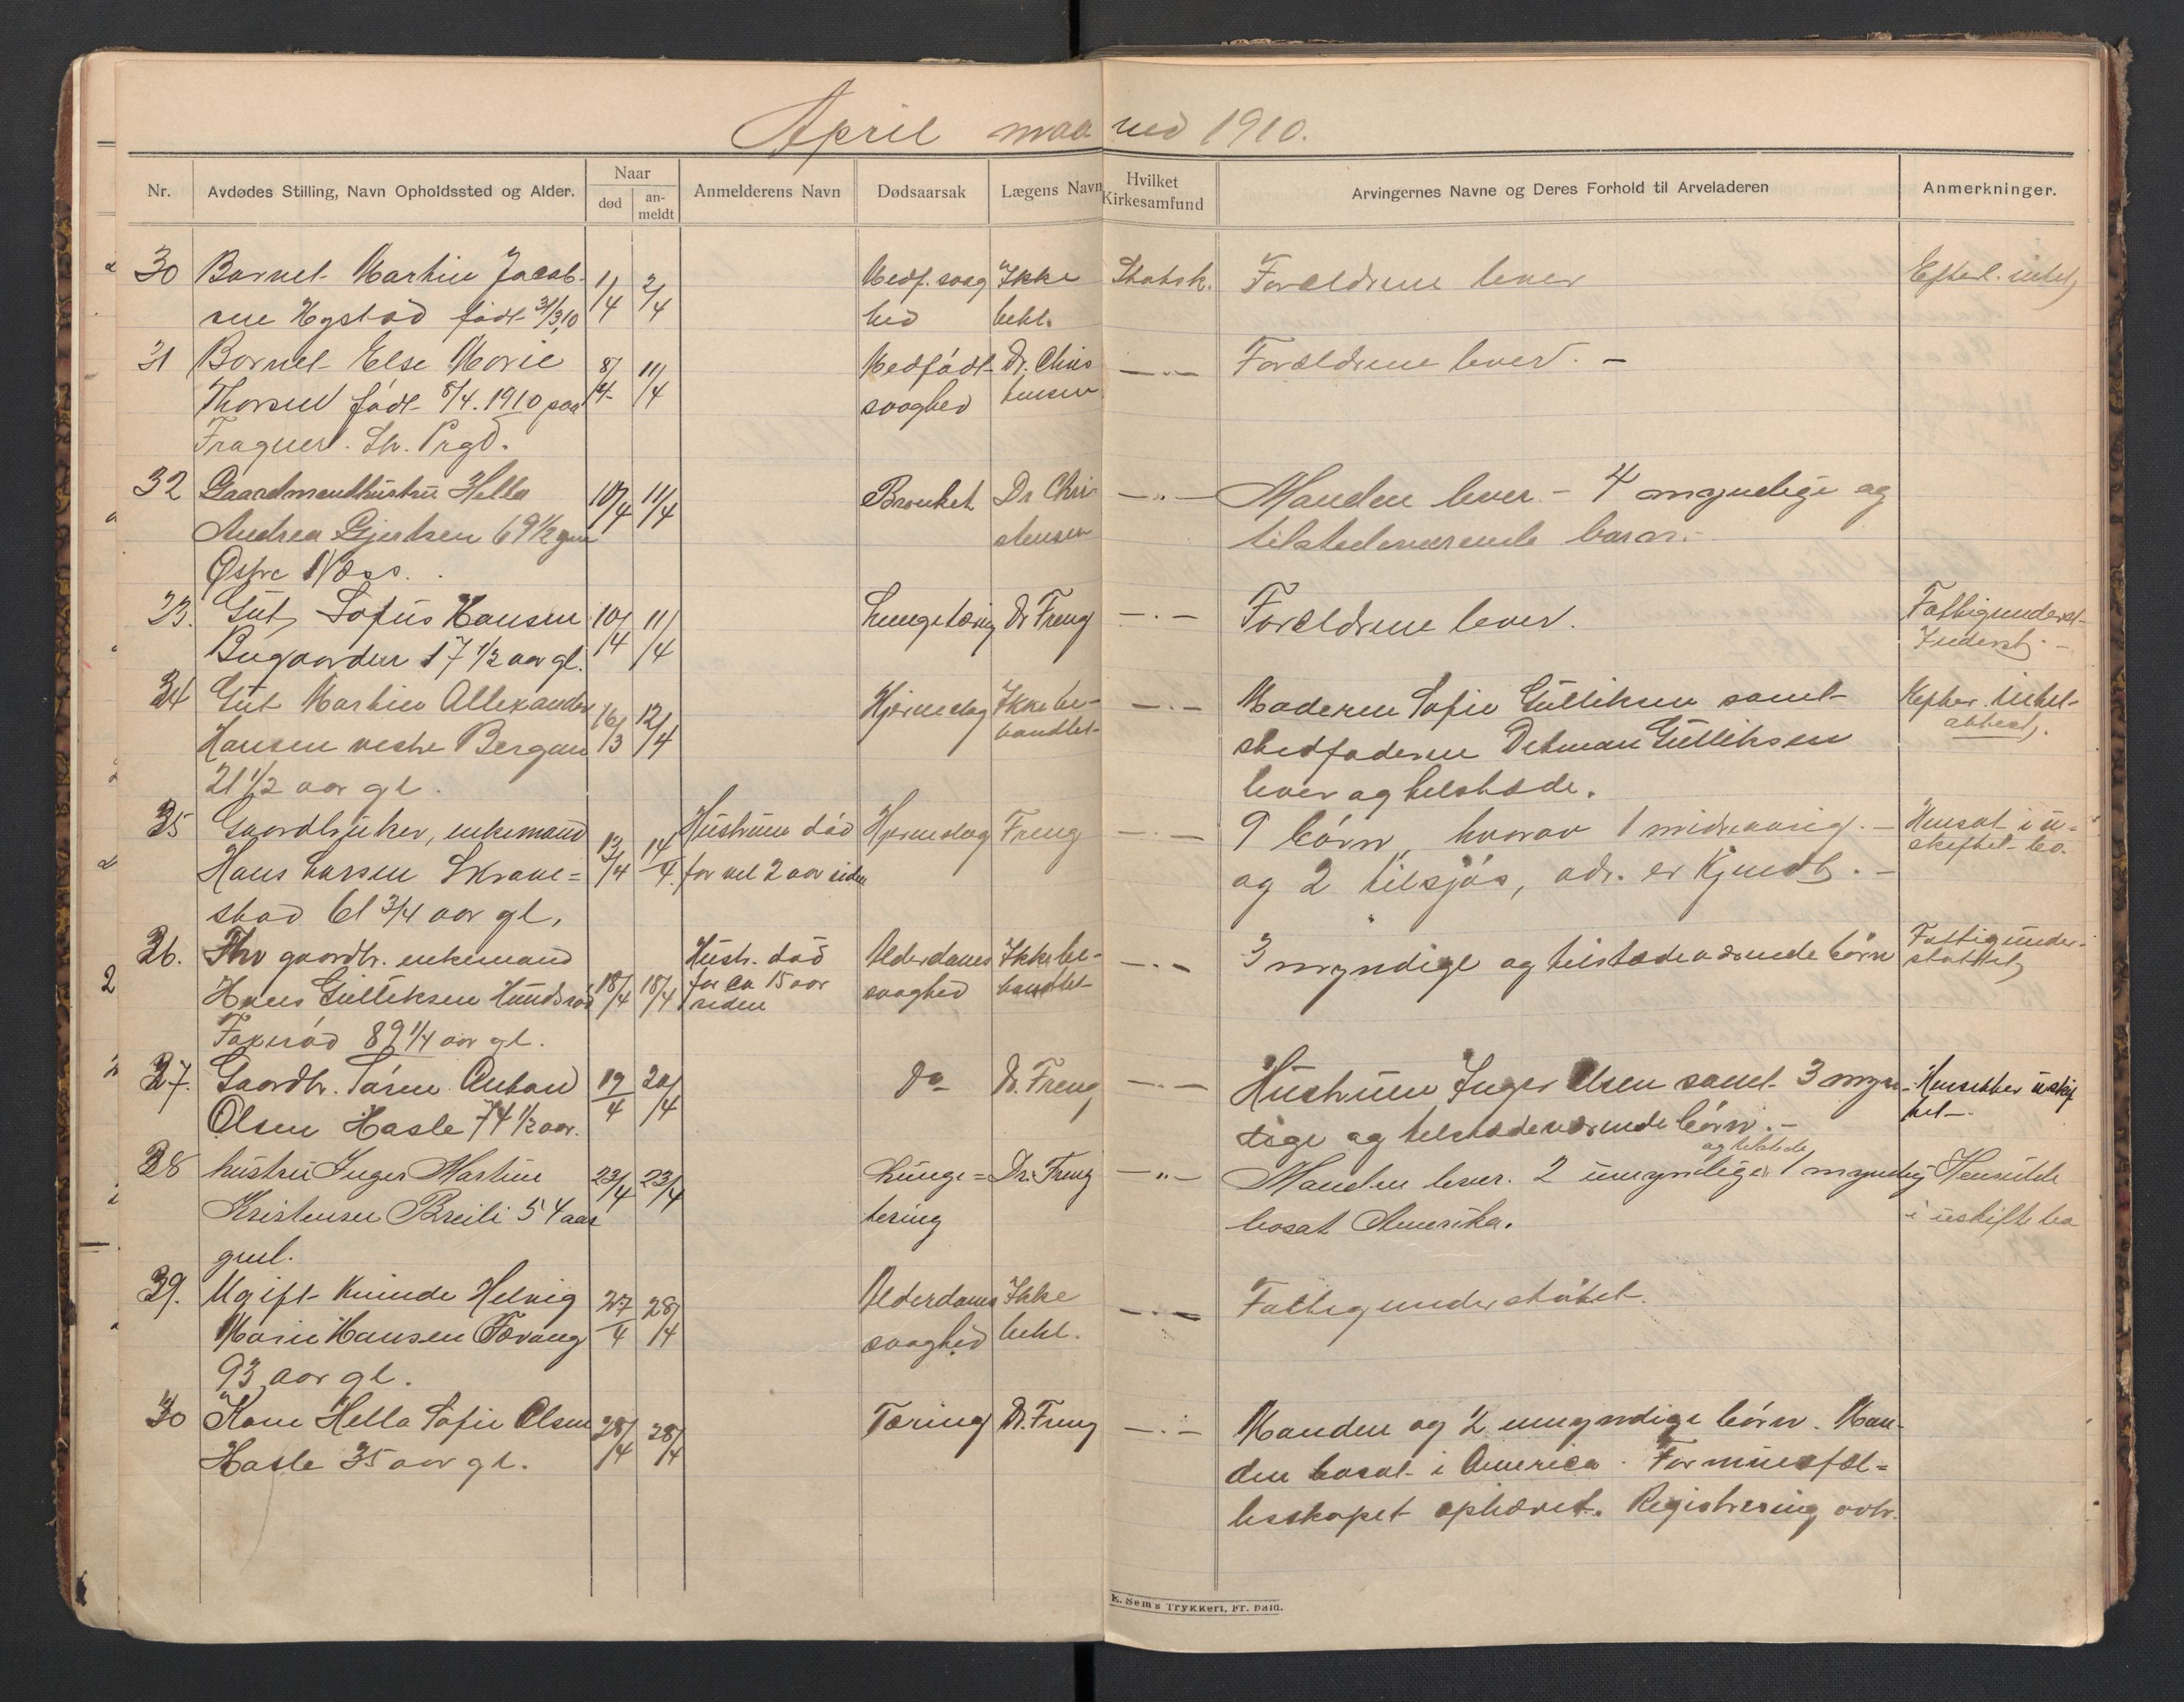 April maaned 1910.
Nr. Avdødes Stilling, Navn Opholdssted og Alder. Naar død an-meldt Anmelderens Navn Dødsaarsak Lægens Navn Hvilket Kirkesamfund Arvingernes Navne og Deres Forhold til Arveladeren Anmerkninger.
30 Barnet Martin Jacob- 1/4 2/4 Medf. svag Ikke Statsk. Forældrene lever Efterl. intet
sen Hystad født 31/3,10 hed behl.
31 Barnet Else Marie 8/4 11/4 Medfødt Dr. Chris — „ — Forældrene lever. —
Thorsen født 8/4. 1910 paa svaghed tensen
Fragner. Sh. Prgd.
32 Gaardmandhustru Hella 10/4 11/4 Bronket Dr Chri — „ — Manden lever. – 4 myndige og
Andrea Gjertsen 69 1/2 gml stensen tilstedeværende barn.–
Østre Næss.
33. Gut Sofus Hansen 10/4 11/4 Lungetæring Dr Freng — „ — Forældrene lever. Fattigunderst
Bugaarden 17 1/2 aar gl.
34 Gut Martin Allexander 16/3 12/4 Hjerneslag Ikke be- — „ — Moderen Sofie Gulliksen samt
Hansen vestre Bergan handlet stedfaderen Detman Gulliksen
21 1/2 aar gl. lever og tilstede.
35 Gaardbruker, enkemand 13/4 14/4. Hustruen død Hjerneslag Freng — „ — 9 børn, hvorav 1 mindreaarig. — Hensat i u-
Hans Larsen Skrave= for vel 2 aar siden og 2 tilsjøs, adr. er kjendt. — skiftet bo.
stad 61 3/4 aar gl,
36. Fhv gaardbr. enkemand 18/4 18/4 Hustr. død Alderdoms Ikke be- — „ — 3 myndige og tilstedeværende børn Fattigunder-
Hans Gulliksen Hundsrød for ca 15 aar svaghed handlet støttet
Foxerød 89 1/4 aar gl. siden
37. Gaardbr. Søren Anton 19/4 20/4 Do Dr. Freng — „ — Hustruen Inger Olsen samt 3 myn-
Olsen Hasle 74 1/2 aar. dige og tilstedeværende børn.–
38 hustru Inger Martine 23/4 23/4 Lunge= Dr. Freng — „ — Manden lever. 2 umyndige og tilstede, 1 myndig Hensidde
Kristensen Breili 54 aar tering bosat Amerika. i uskifte bo
gml.
39. Ugift Kvinde Helvig 27/4 28/4 Alderdoms Ikke — „ — Fattigunderstøtet.
Marie Hansen Forang svaghed behl.
93 aar gl.
40 Kone Hella Sofie Olsen 28/4 28/4 Tæring Dr. Freng — „ — Manden og 2 umyndige børn. Man-
Hasle 35 aar gl. den bosat i America. Formuesfæl=
lesskapet ophævet. Registrering avh.
E. Sem's Trykkeri, Fr. hald.